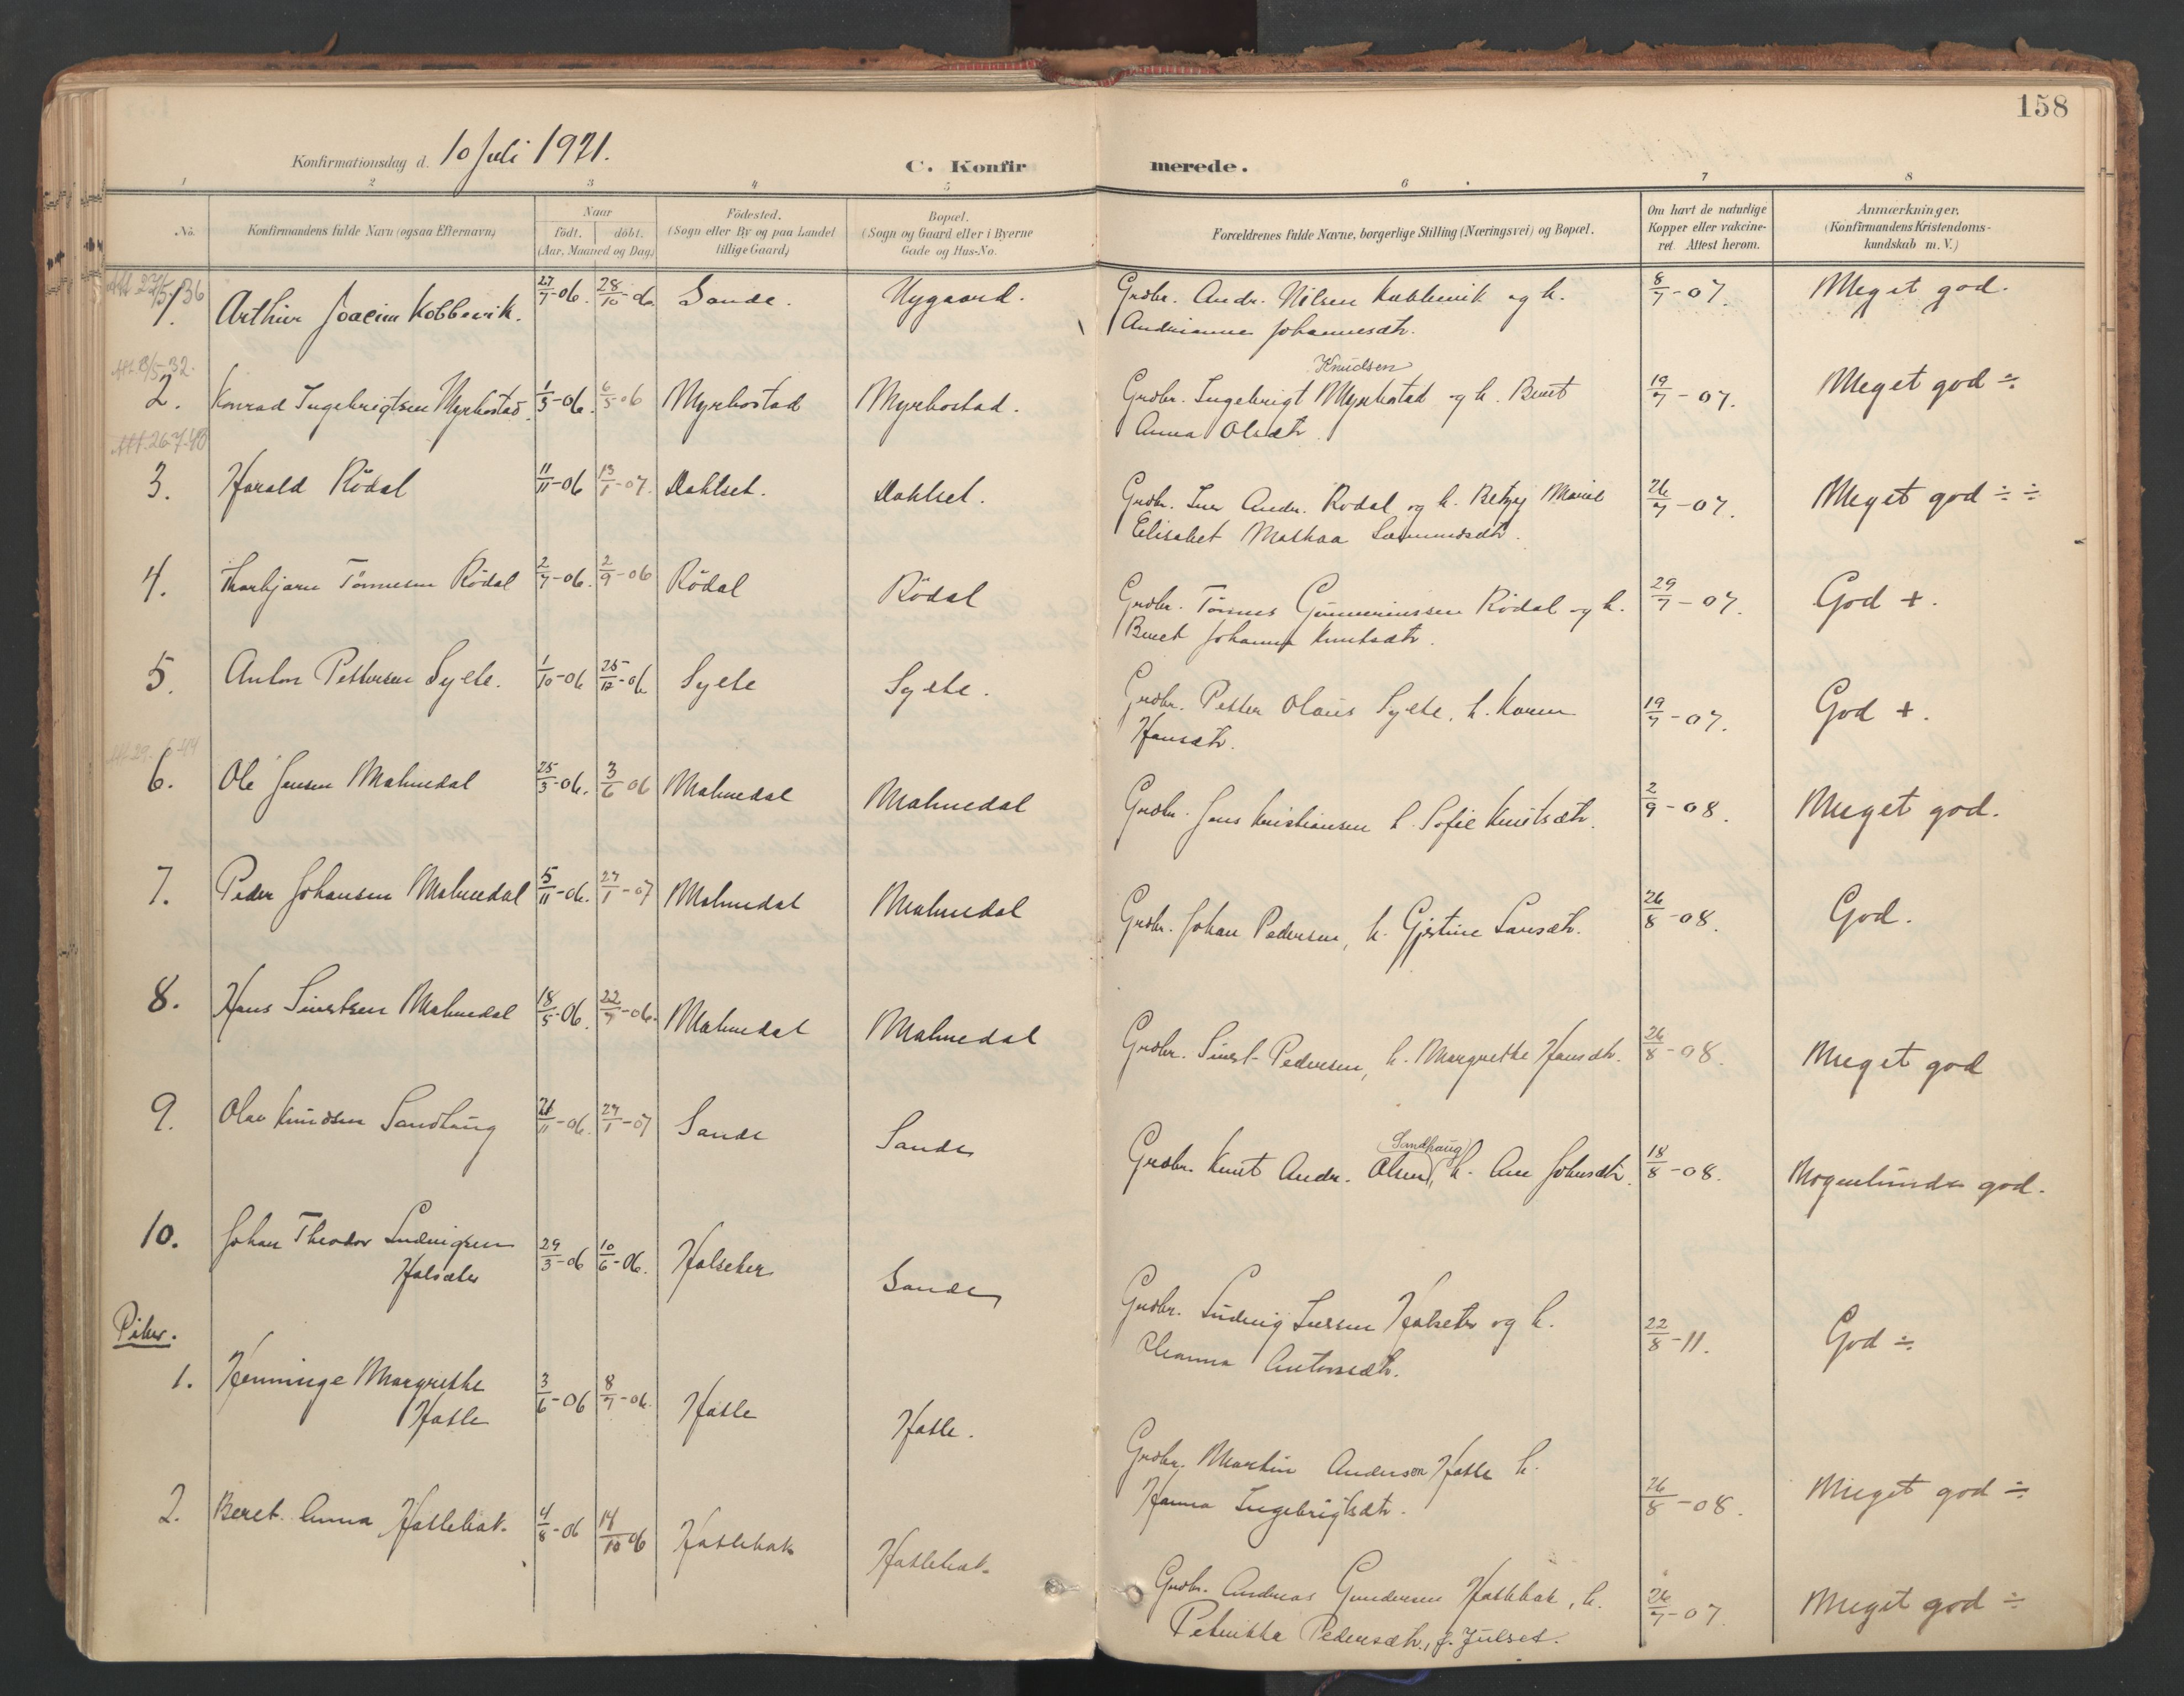 158
Konfirmationsdag d. 10 Juli 1921.
C. Konfirmerede.
1 2 3 4 5 6 7 8
No.
Konfirmandens fulde Navn (ogsaa Efternavn)
Naar
födt. döbt.
(Aar, Maaned og Dag)
Födested.
(Sogn eller By og paa Landet
tillige Gaard)
Bopæl.
(Sogn og Gaard eller i Byerne
Gade og Hus-No.
Forældrenes fulde Navne, borgerlige Stilling (Næringsvei) og Bopæl.
Om havt de naturlige
Kopper eller vakcine-
ret. Attest herom.
Anmærkninger.
(Konfirmandens Kristendoms-
kundskab m. V.)
1. Arthur Joacim Kobbevik. 27/7-06. 28/10-06 Sande. Nygaard. Grdbr. Andr. Nilsen Kobbevik og h. 8/7-07. Meget god.
Andrianna Johannesdtr.
Att. 8/5-32.
Knudsen
2. Konrad Ingebrigtsen Myrbostad. 1/3-06. 6/5-06 Myrbostad Myrbostad. Grdbr. Ingebrigt Myrbostad og h. Beret 19/7-07. Meget god ÷
Anna Olsdtr.
Att. 26-7-48
3. Harald Rödal 11/11-06 13/1-07. Dahlset. Dahlset. Grdbr. Iver Andr. Rødal og h. Betzy Marie 26/7-07. Meget god ÷ ÷
Elisabet Matkaa Sæmundsdtr.
4. Thorbjørn Tönnesen Rödal 2/7-06. 2/9-06 Rödal Rödal Grdbr. Tönnes Gunneriussen Rödal og h. 29/7-07. God +.
Beret Johanna Knutsdtr.
5. Anton Pettersen Sylte. 1/10-06 25/12-06 Sylte Sylte. Grdbr. Petter Olaus Sylte, h. Karen 19/7-07. God +.
Hansdtr.
6. Ole Jensen Malmedal 25/3-06. 3/6-06 Malmedal Malmedal Grdbr. Jens Kristiansen h. Sofie Knutsdtr. 2/9-08. Meget god.
7. Peder Johansen Malmedal 5/11-06. 27/1-07 Malmedal Malmedal Grdbr. Johan Pedersen, h. Gjertine Larsdtr. 26/8-08. God.
8. Hans Sivertsen Malmedal 18/5-06. 22/7-06. Malmedal Malmedal Grdbr. Sivert Pedersen, h. Margrethe Hansdtr. 26/8-08. Meget god
(Sandhaug)
9. Olav Knudsen Sandhaug 21/11-06. 27/1-07 Sande Sande Grdbr. Knut Andr. Olsen, h. Ane Johnsdtr. 18/8-08. Mogenlunde god.
10. Johan Theodor Ludvigsen 29/3-06 10/6-06. Halseter Sande Grdbr. Ludvig Iversen Halseter og h. 22/8-11. God ÷
Halsæter
Oleanna Antonsdtr.
Piker.
1. Henninge Margrethe 3/6-06 8/7-06. Hatle Hatle. Grdbr. Martin Anderson Hatle h. 26/8-08. Meget god ÷
Hatle
Hanna Ingebrigtsdtr.
2. Beret Anna Hatlebak. 4/8-06 14/10 06 Hatlebak Hatlebak. Grdbr. Andreas Gundersen Hatlebak, h. 26/7-07. Meget god ÷
Petrikka Pedersdtr., f. Julset.